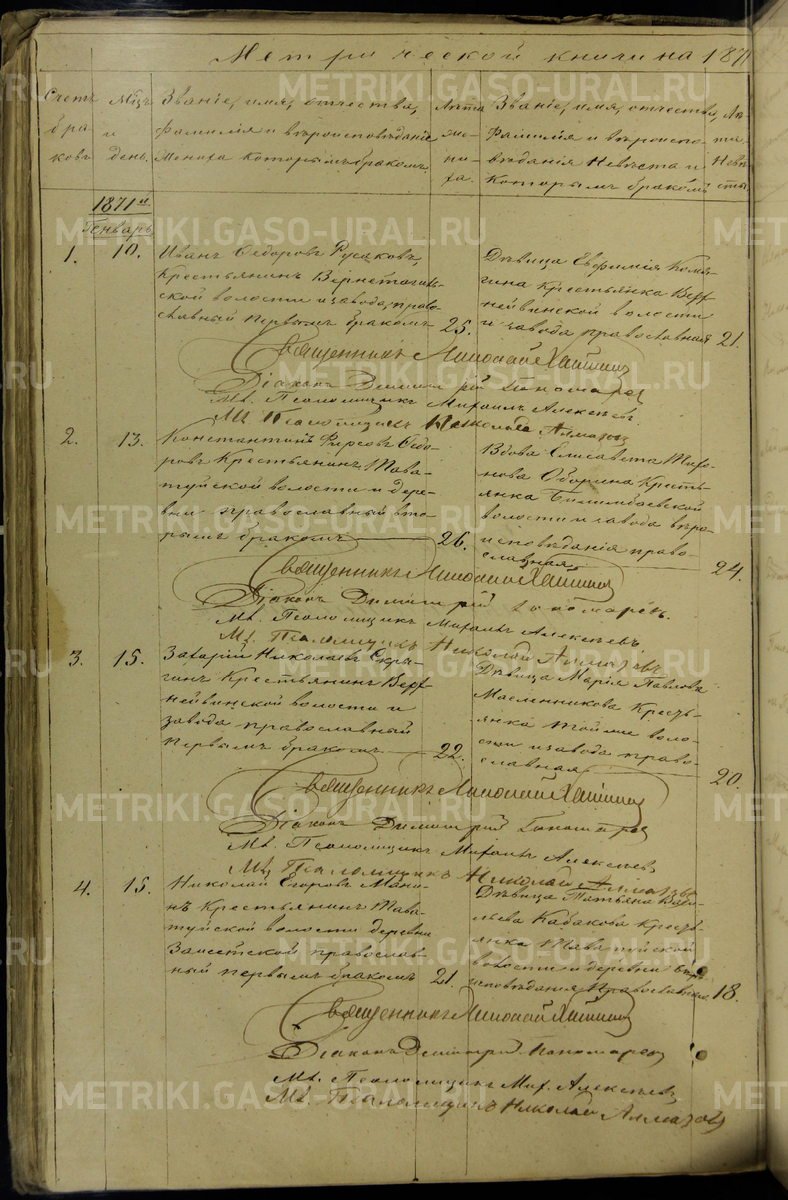 Метрической книги на 1871
Счетъ
бра
ковъ
Мѣц.
и
день.
Званіе, имя, отчество,
фамилія и вѣроисповѣданіе
жениха которымъ бракомъ.
Лѣта
же-
ни-
ха.
Званіе, имя, отчество,
фамилія и вѣроиспо-
вѣданія невѣста и
которымъ бракомъ
Лѣ
та
Невѣ
сты
1871
Генварь
1.
10.
Иванъ Ѳедоровъ Русаковъ,
Крестьянинъ
ской волости и завода, право-
славный первымъ бракомъ
25.
Дѣвица Евфимія
Крестьянка Верх
нейвинской волости
и завода православная
21.
Священникъ Николай
Діаконъ Димитрій Пономарев
И. д. Псаломщикъ Михаилъ Алексѣевъ.
Псаломщикъ Николай Алмазов
2.
13.
Константинъ Фирсовъ Ѳедо-
ровъ Крестьянинъ Тава-
туйской волости и дерев-
ни православный вто-
рымъ бракомъ
26.
Вдова Елисавета
Оборина Кресть-
янка Билимбаевской
волости и завода вѣро-
исповѣданія право-
славная
24.
Священникъ Николай
Діаконъ Димитрій Пономаревъ.
Псаломщикъ Михаилъ Алексѣевъ.
Псаломщикъ Николай Алмазовъ
3.
15.
Захарій Николаевъ
Крестьянинъ Верх
нейвинской волости и
завода православный
первымъ бракомъ
22.
Дѣвица Марія Павлова
Масленникова Кресть-
янка той же воло-
сти и завода право-
славная
20.
Священникъ Николай
Діаконъ Димитрій Пономарев
Псаломщикъ Михаилъ Алексѣев
Псаломщикъ Николай Алмазов
4.
15.
Николай Егоровъ Мани-
нъ Крестьянинъ Тава-
туйской волости деревни
православ-
ный первымъ бракомъ
21.
Дѣвица Татьяна Васи-
льева Кабакова Кресть-
янка Таватуйской
волости и деревни вѣро
исповѣданія Православная
18.
Священникъ Николай
Діаконъ Димитрій Пономарев
Псаломщикъ Мих. Алексѣев
Псаломщикъ Николай Алмазов
METRIKI.GASO-URAL.RU